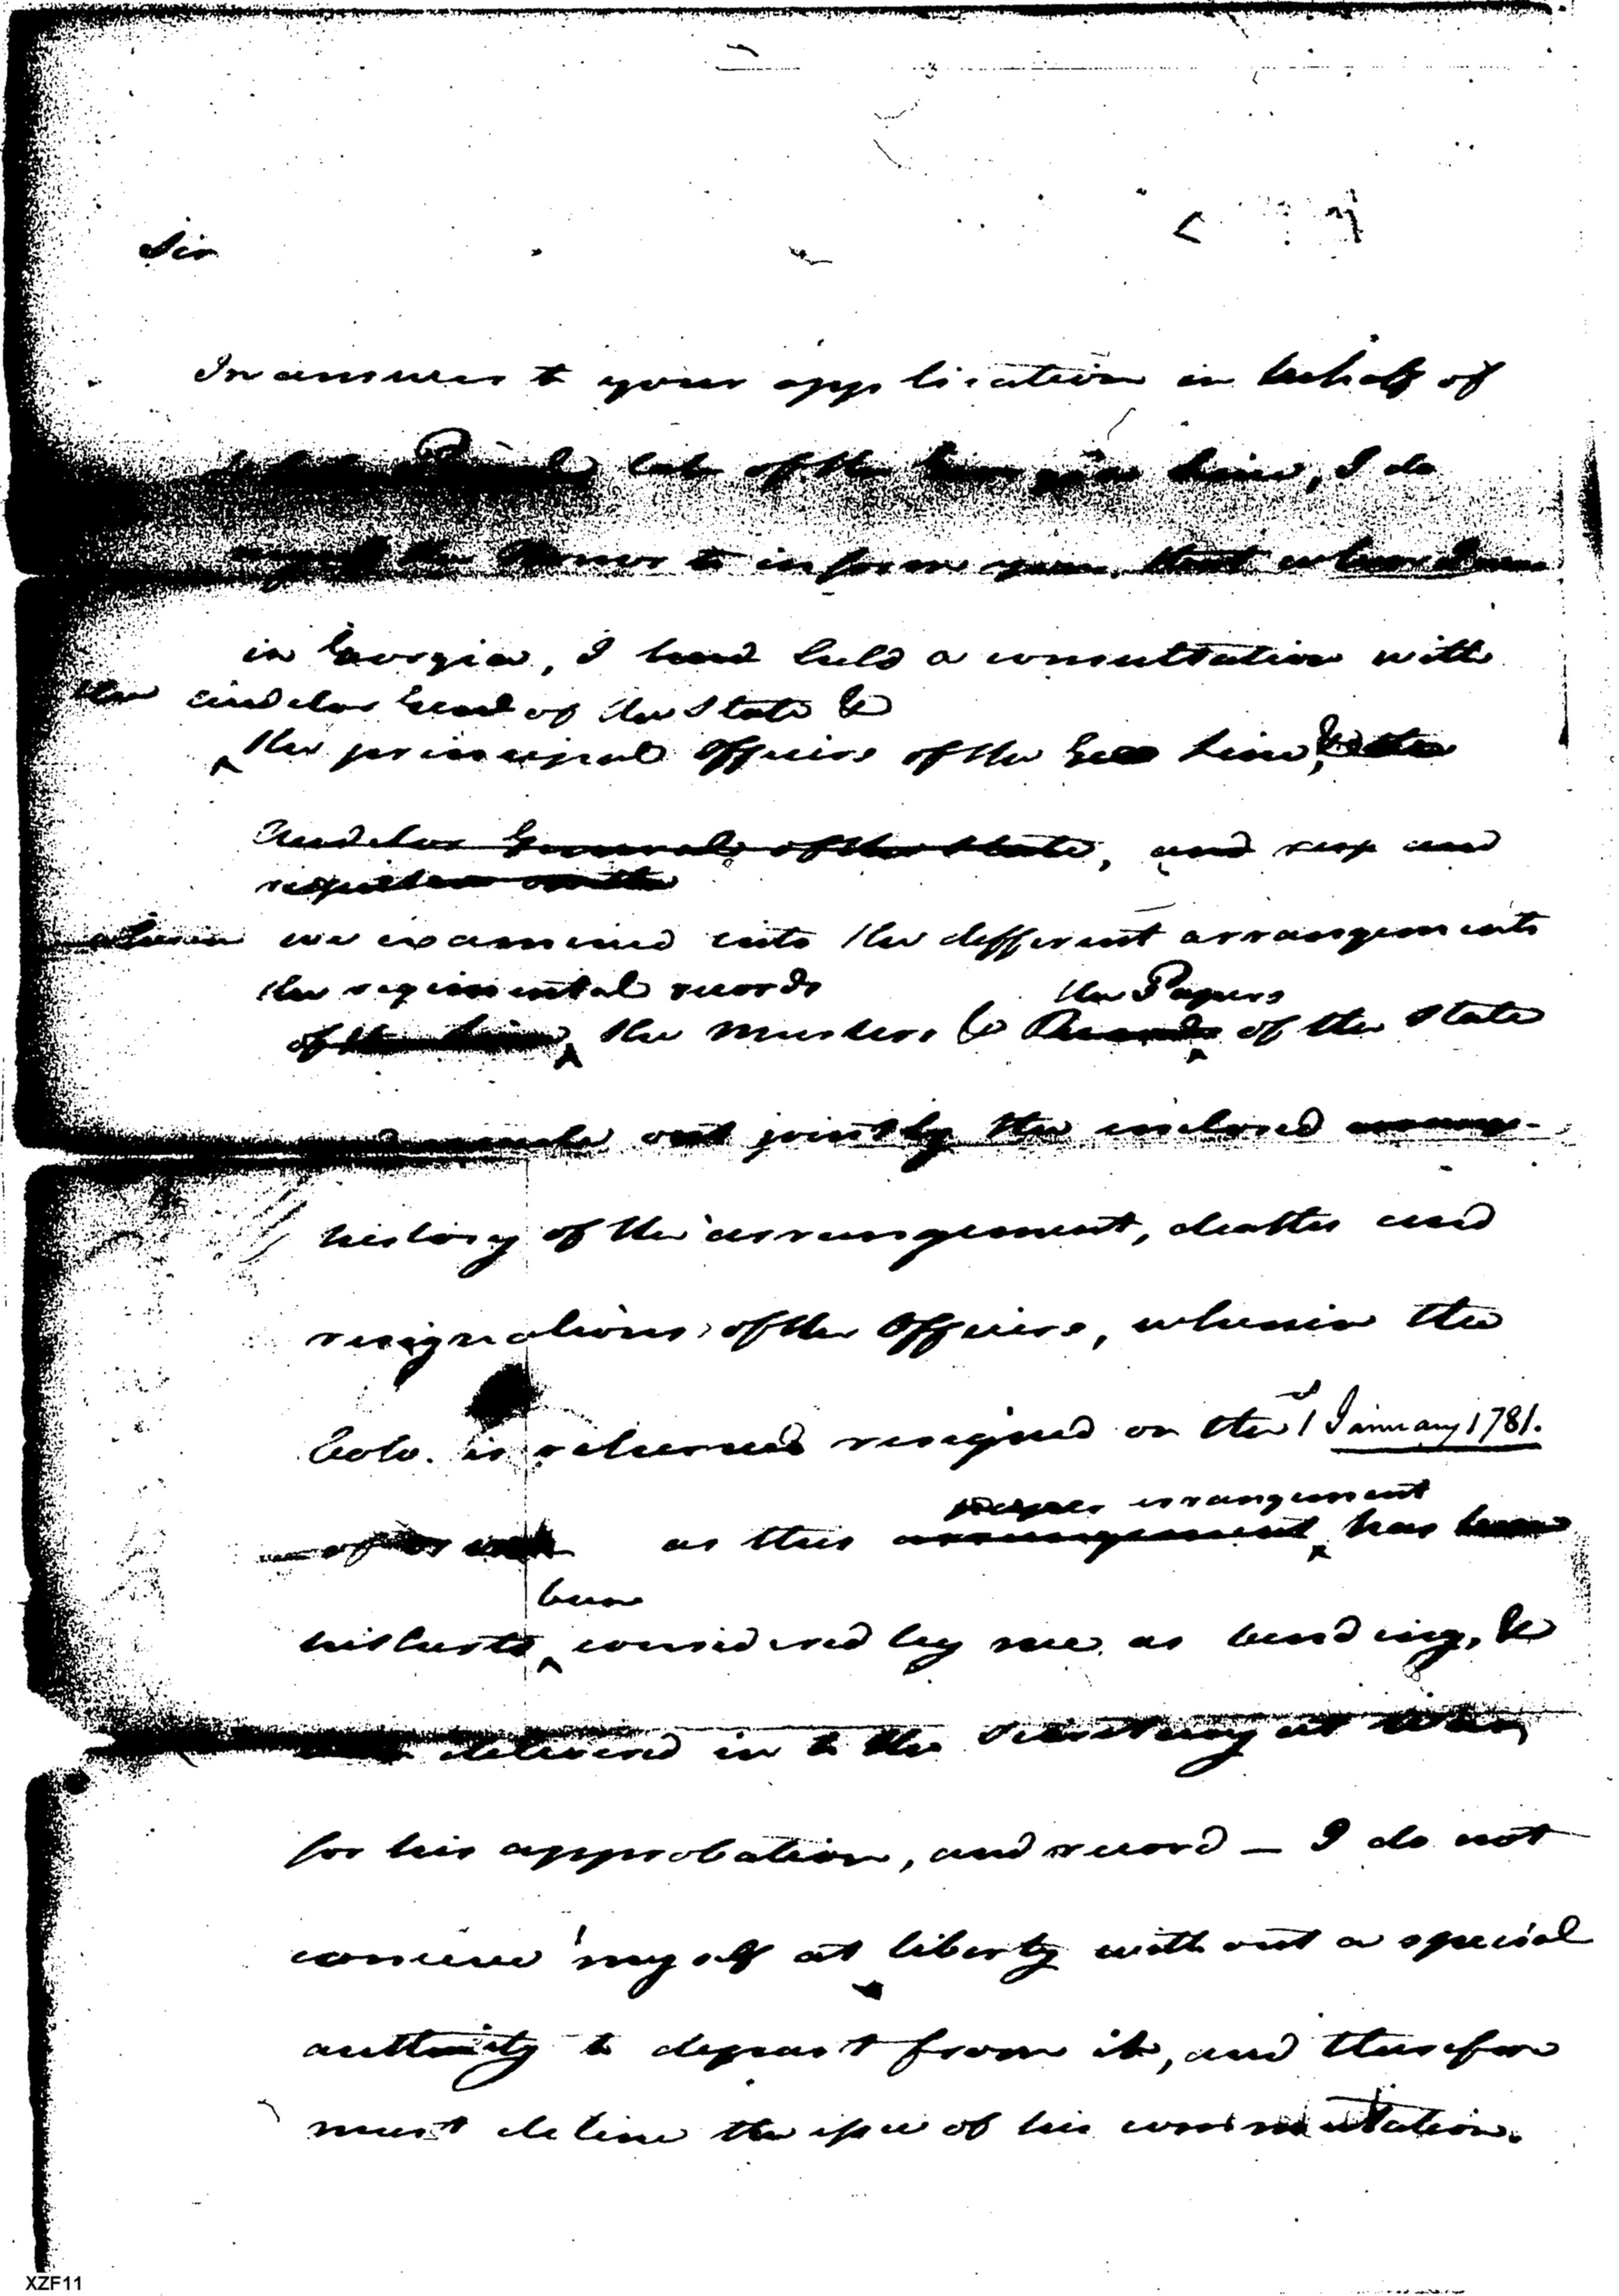 Sir
In answer to your application in behalf of
late of the Georgia Line, I do
the Honor to inform you, that when I was
in Georgia, I had held a consultation with
the Auditor Genl of the State &
the principal Officers of the Geo Line, & the
Auditor General of the State, and resp and
we examined into the different arrangements
the regimental records the Papers
of the Line, the Musters & Records of the State
made out jointly the inclosed arrang-
history of the arrangement, deaths and
resignations of the Officers, wherein the
Colo. is returned resigned on the 1st January 1781.
arrangement
as this arrangement has been
been
hitherto considered by me as binding, &
delivered in to the Secretary at War,
for his approbation, and record — I do not
conceive myself at liberty without a special
authority to depart from it, and therefore
must decline the issue of his commutation.
XZF11